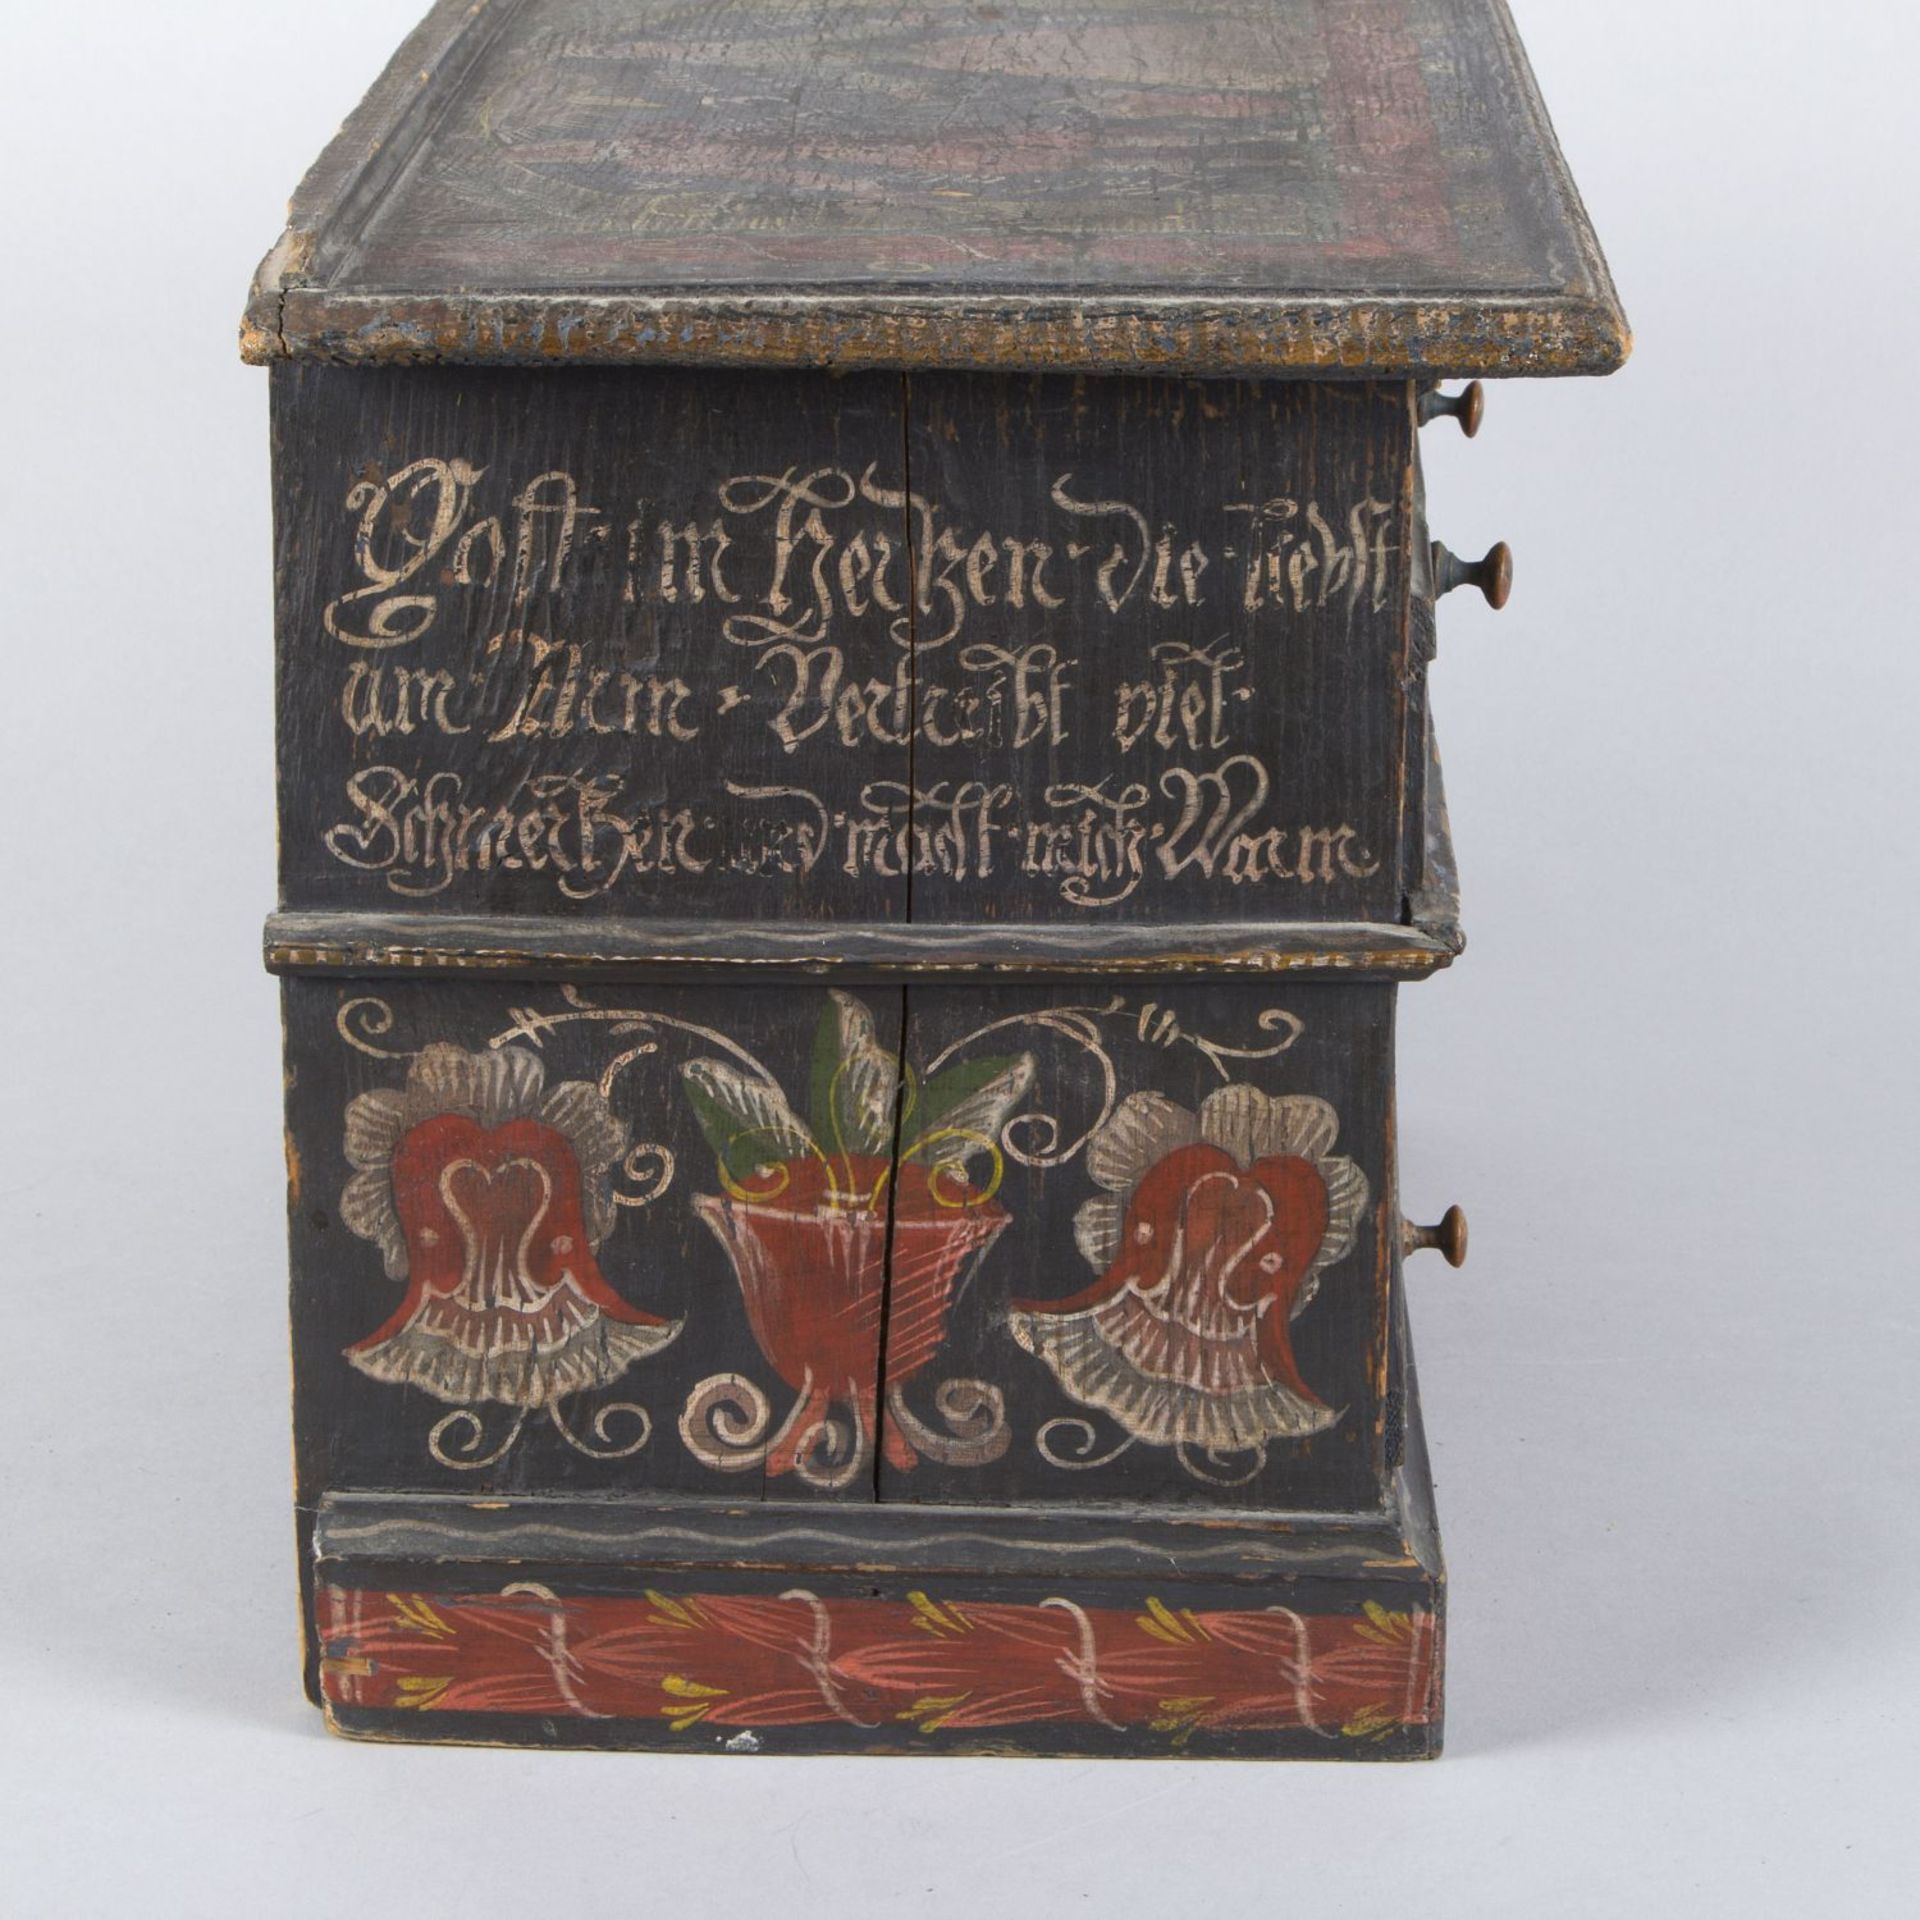 Gost im Hertzen die liebst
um Arm Vertreibt viel
Schmertzen und macht mich Warm